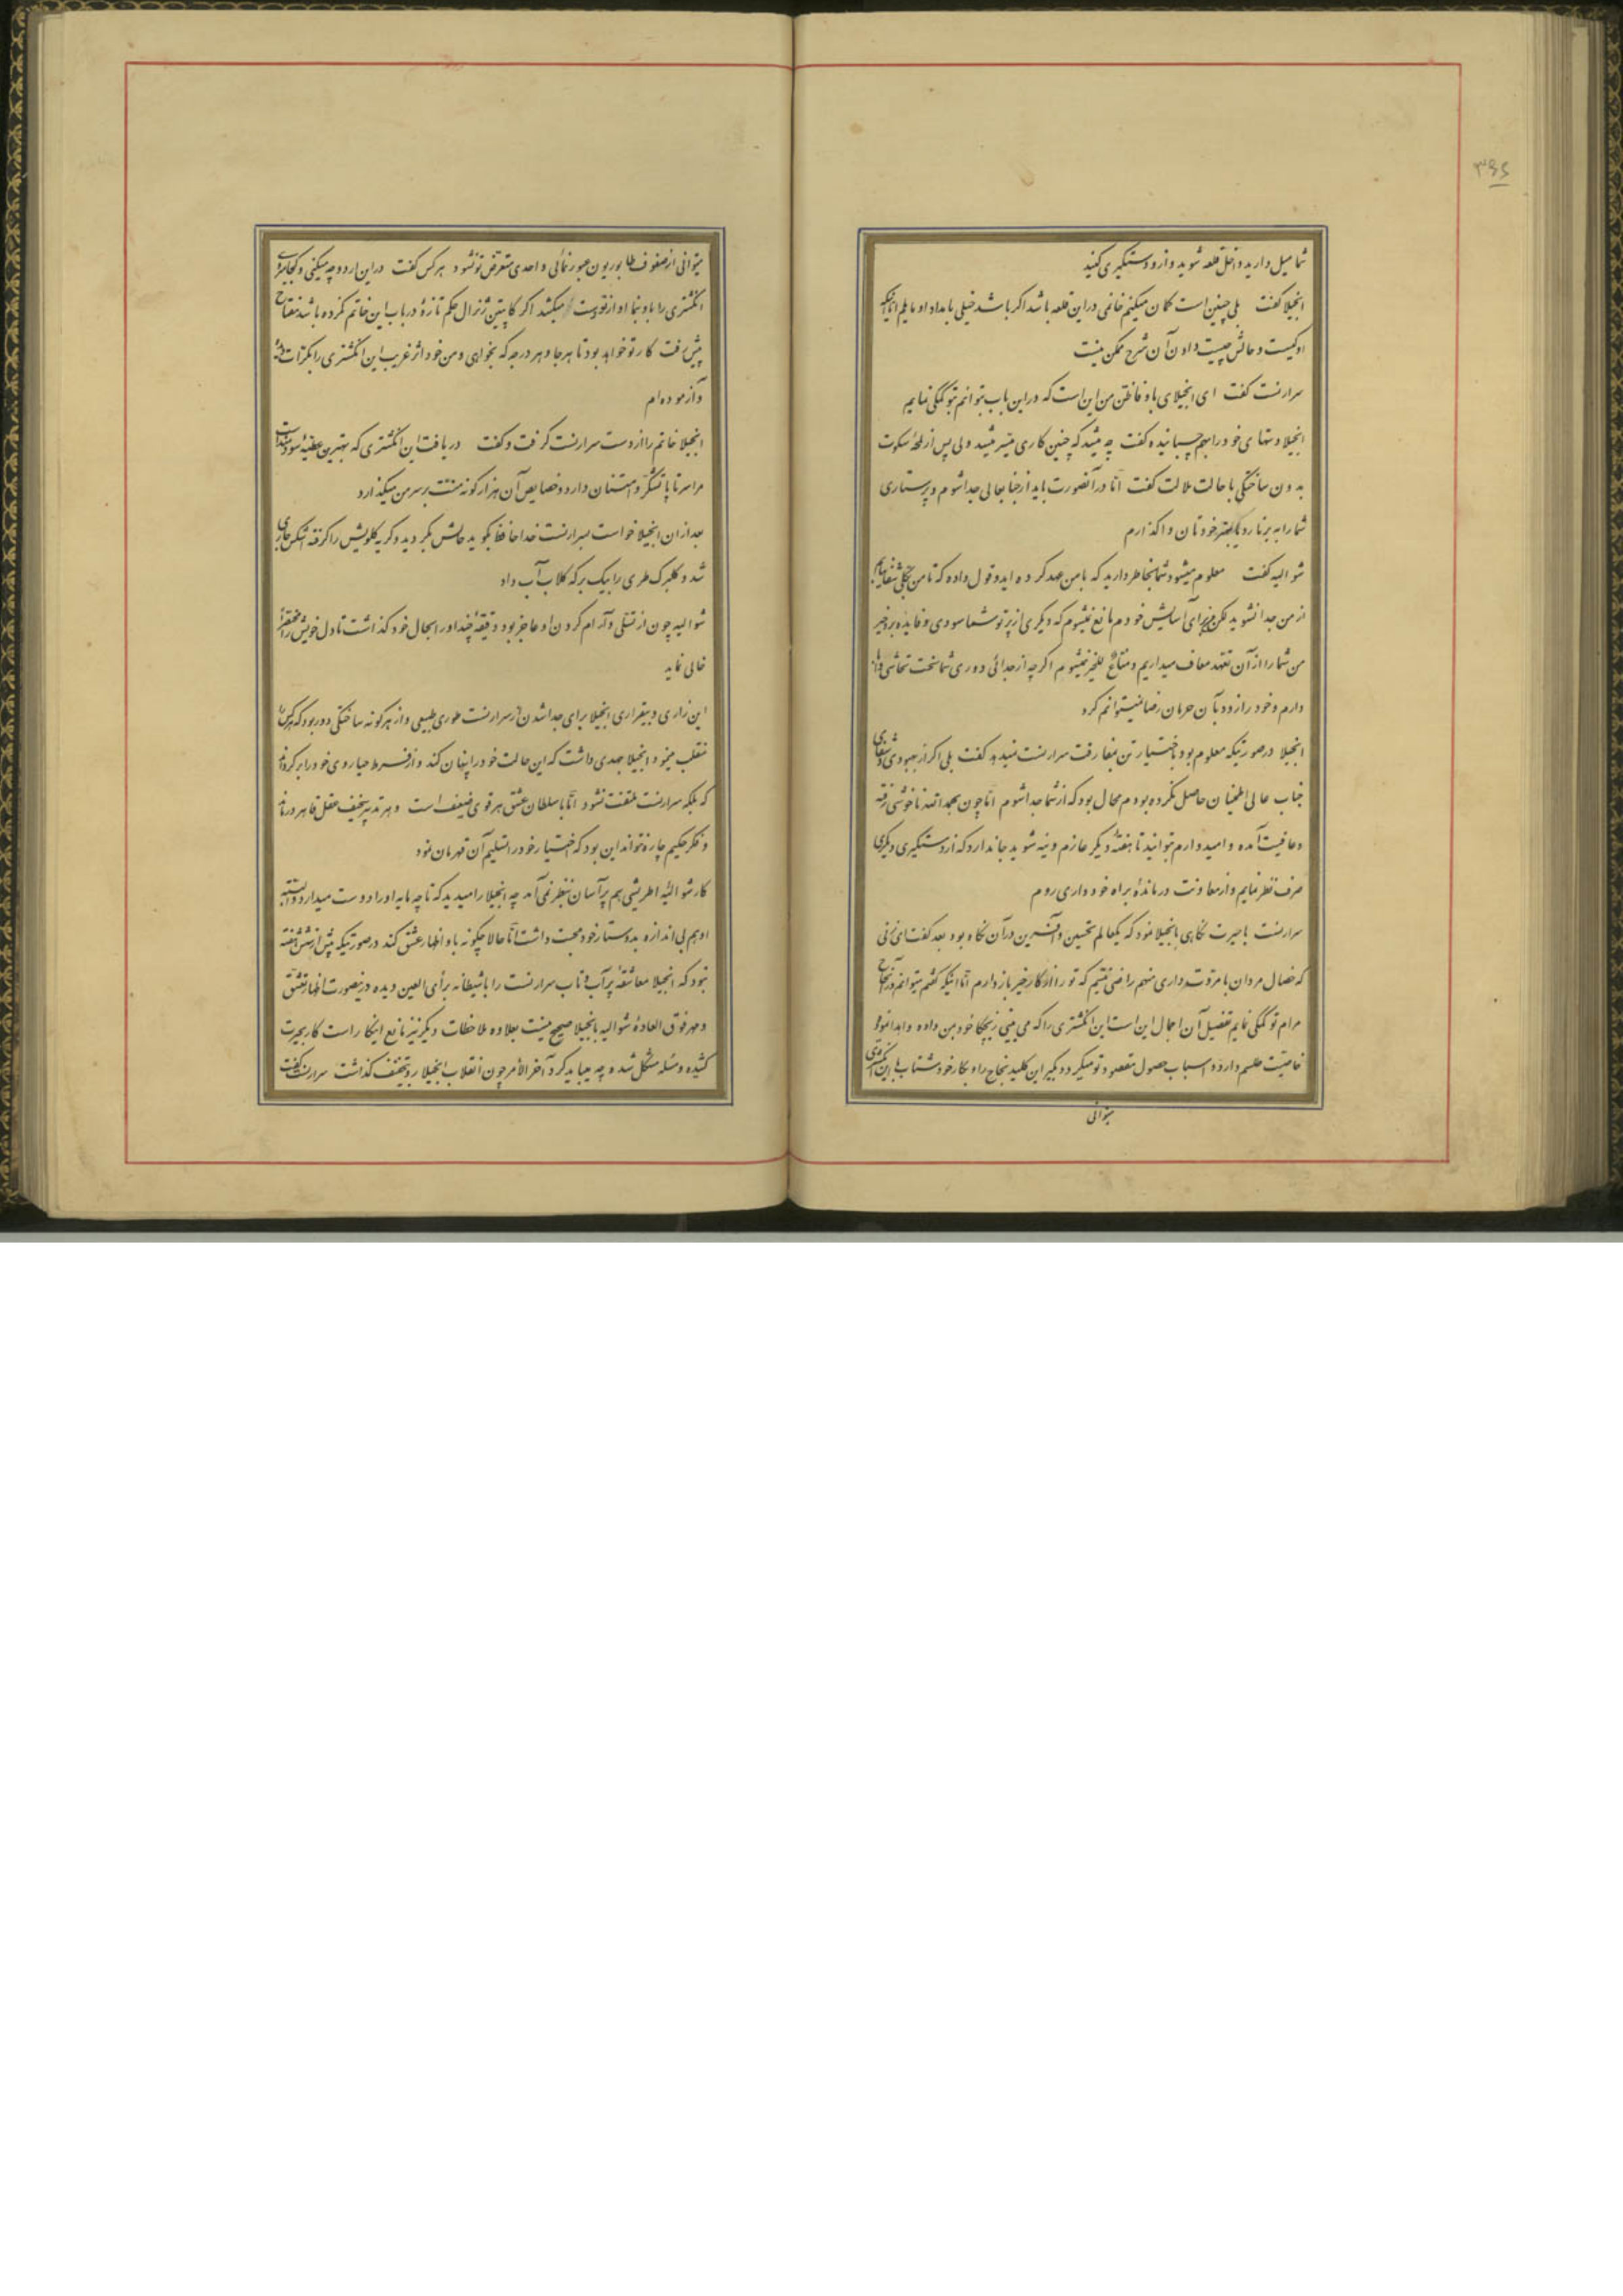 ۳۶۵
شما میل دارید داخل قلعه شوید و از او دستگیری کنید
انجیلا گفت بلی چنین است گمان میکنم خانمی در این قلعه باشد اگر باشد خیلی بامداد او مایلم اما اینکه
او کیست و حالش چیست دادن آن شرح ممکن نیست
سرارنست گفت ای انجیلای باوفا ظن من این است که در این باب بتوانم بتو کمکی نمایم
انجیلا دستهای خود را بهم چسبانیده گفت چه میشد که چنین کاری میسر میشد ولی پس از لمحهٔ سکوت
بدون ساختگی با حالت ملالت گفت اما در آنصورت باید از جنابعالی جدا شوم و پرستاری
شما را به برنارد یا بفتر خودتان واگذارم
شوالیه گفت معلوم میشود شما بخاطر دارید که با من عهد کرده اید و قول داده که تا من بکلی شفا نیابم
از من جدا نشوید لکن من برای آسایش خودم مانع نمیشوم که دیگری از پرتو شما سودی و فایده برد خیر
من شما را از آن تعهد معاف میداریم و مناع للخیر نمیشوم اگرچه از جدائی و دوری شما سخت تحاشی
دارم و خود را زود بآن حرمان رضا نمیتوانم کرد
انجیلا در صورتیکه معلوم بود باختیار تن بمفارقت سرارنست نمیدهد گفت بلی اگر از بهبودی و شفای
جناب عالی اطمینان حاصل نکرده بودم محال بود که از شما جدا شوم اما چون بحمدالله ناخوشی رفته
و عافیت آمده و امیدوارم بتوانید تا هفتهٔ دیگر عازم وینه شوید جا ندارد که از دستگیری دیگری
صرف نظر نمایم و از معاونت درماندهٔ براه خودداری روم
سرارنست با حیرت نگاهی بانجیلا نمود که یکعالم تحسین و آفرین در آن نگاه بود بعد گفت ای زنی
که خصال مردان با مروت داری منهم راضی نیستم که تو را از کار خیر بازدارم اما اینکه گفتم میتوانم در انجاح
مرام تو کمکی نمایم تفصیل آن اجمال این است این انگشتری را که می بینی زیچکا خود بمن داده و اهدا نموده
خاصیت طلسم دارد و اسباب حصول مقصود تو میگردد بگیر این کلید نجاح را و بکار خود شتاب با این انگشتری
میتوانی
میتوانی از صفوف طابوریون عبور نمائی و احدی متعرض تو نشود هر کس گفت در این اردو چه میکنی و کجا میروی
انگشتری را باو بنما او از تو دست میکشد اگر کاپیتن ژنرال حکم تازهٔ در باب این خاتم نکرده باشد مفتاح
پیش رفت کار تو خواهد بود تا هر جا و هر درجه که بخواهی و من خود اثر غریب این انگشتری را بکرات دیده
و آزموده‌ام
انجیلا خاتم را از دست سرارنست گرفت و گفت دریافت این انگشتری که بهترین عطیهٔ سودمند است
مرا سرتاپا تشکر و امتنان دارد و خصایص آن هزار گونه منت بر سر من میگذارد
بعد از آن انجیلا خواست سرارنست خداحافظ بگوید حالش بگردید و گریه گلویش را گرفته اشکش جاری
شد و گلبرگ طری را بیک برکه گلاب آب داد
شوالیه چون از تسلی و آرام کردن او عاجز بود دقیقهٔ چند او را بحال خود گذاشت تا دل خویش را مختصراً
خالی نماید
این زاری و بیقراری انجیلا برای جدا شدن از سرارنست طوری طبیعی و از هر گونه ساختگی دور بود که هر کس را
منقلب مینمود انجیلا جهدی داشت که این حالت خود را پنهان کند و از فرط حیا روی خود را برگرداند
که بلکه سرارنست ملتفت نشود اما با سلطان عشق هر قوی ضعیف است و هر تدبیر سخیف عقل قاهر درماند
و فکر حکیم چاره نتواند این بود که اختیار خود را تسلیم آن قهرمان نمود
کار شوالیهٔ اطریشی هم پر آسان بنظر نمی‌آمد چه انجیلا را میدید که تا چه مایه او را دوست میدارد و البته
او هم بی‌اندازه پرستار خود محبت داشت اما حالا چگونه باو اظهار عشق کند در صورتیکه بیش از شش هفته
نبود که انجیلا معاشقهٔ پر آب و تاب سرارنست را با شیطانه برأی العین دیده در نصورت اظهار تعشق
و مهر فوق العادهٔ شوالیه بانجیلا صحیح نیست بعلاوه ملاحظات دیگر نیز مانع اینکار است کار بحیرت
کشیده و مسئله مشکل شده چه میباید کرد آخر الامر چون انقلاب انجیلا رو بتخفیف گذاشت سرارنست گفت